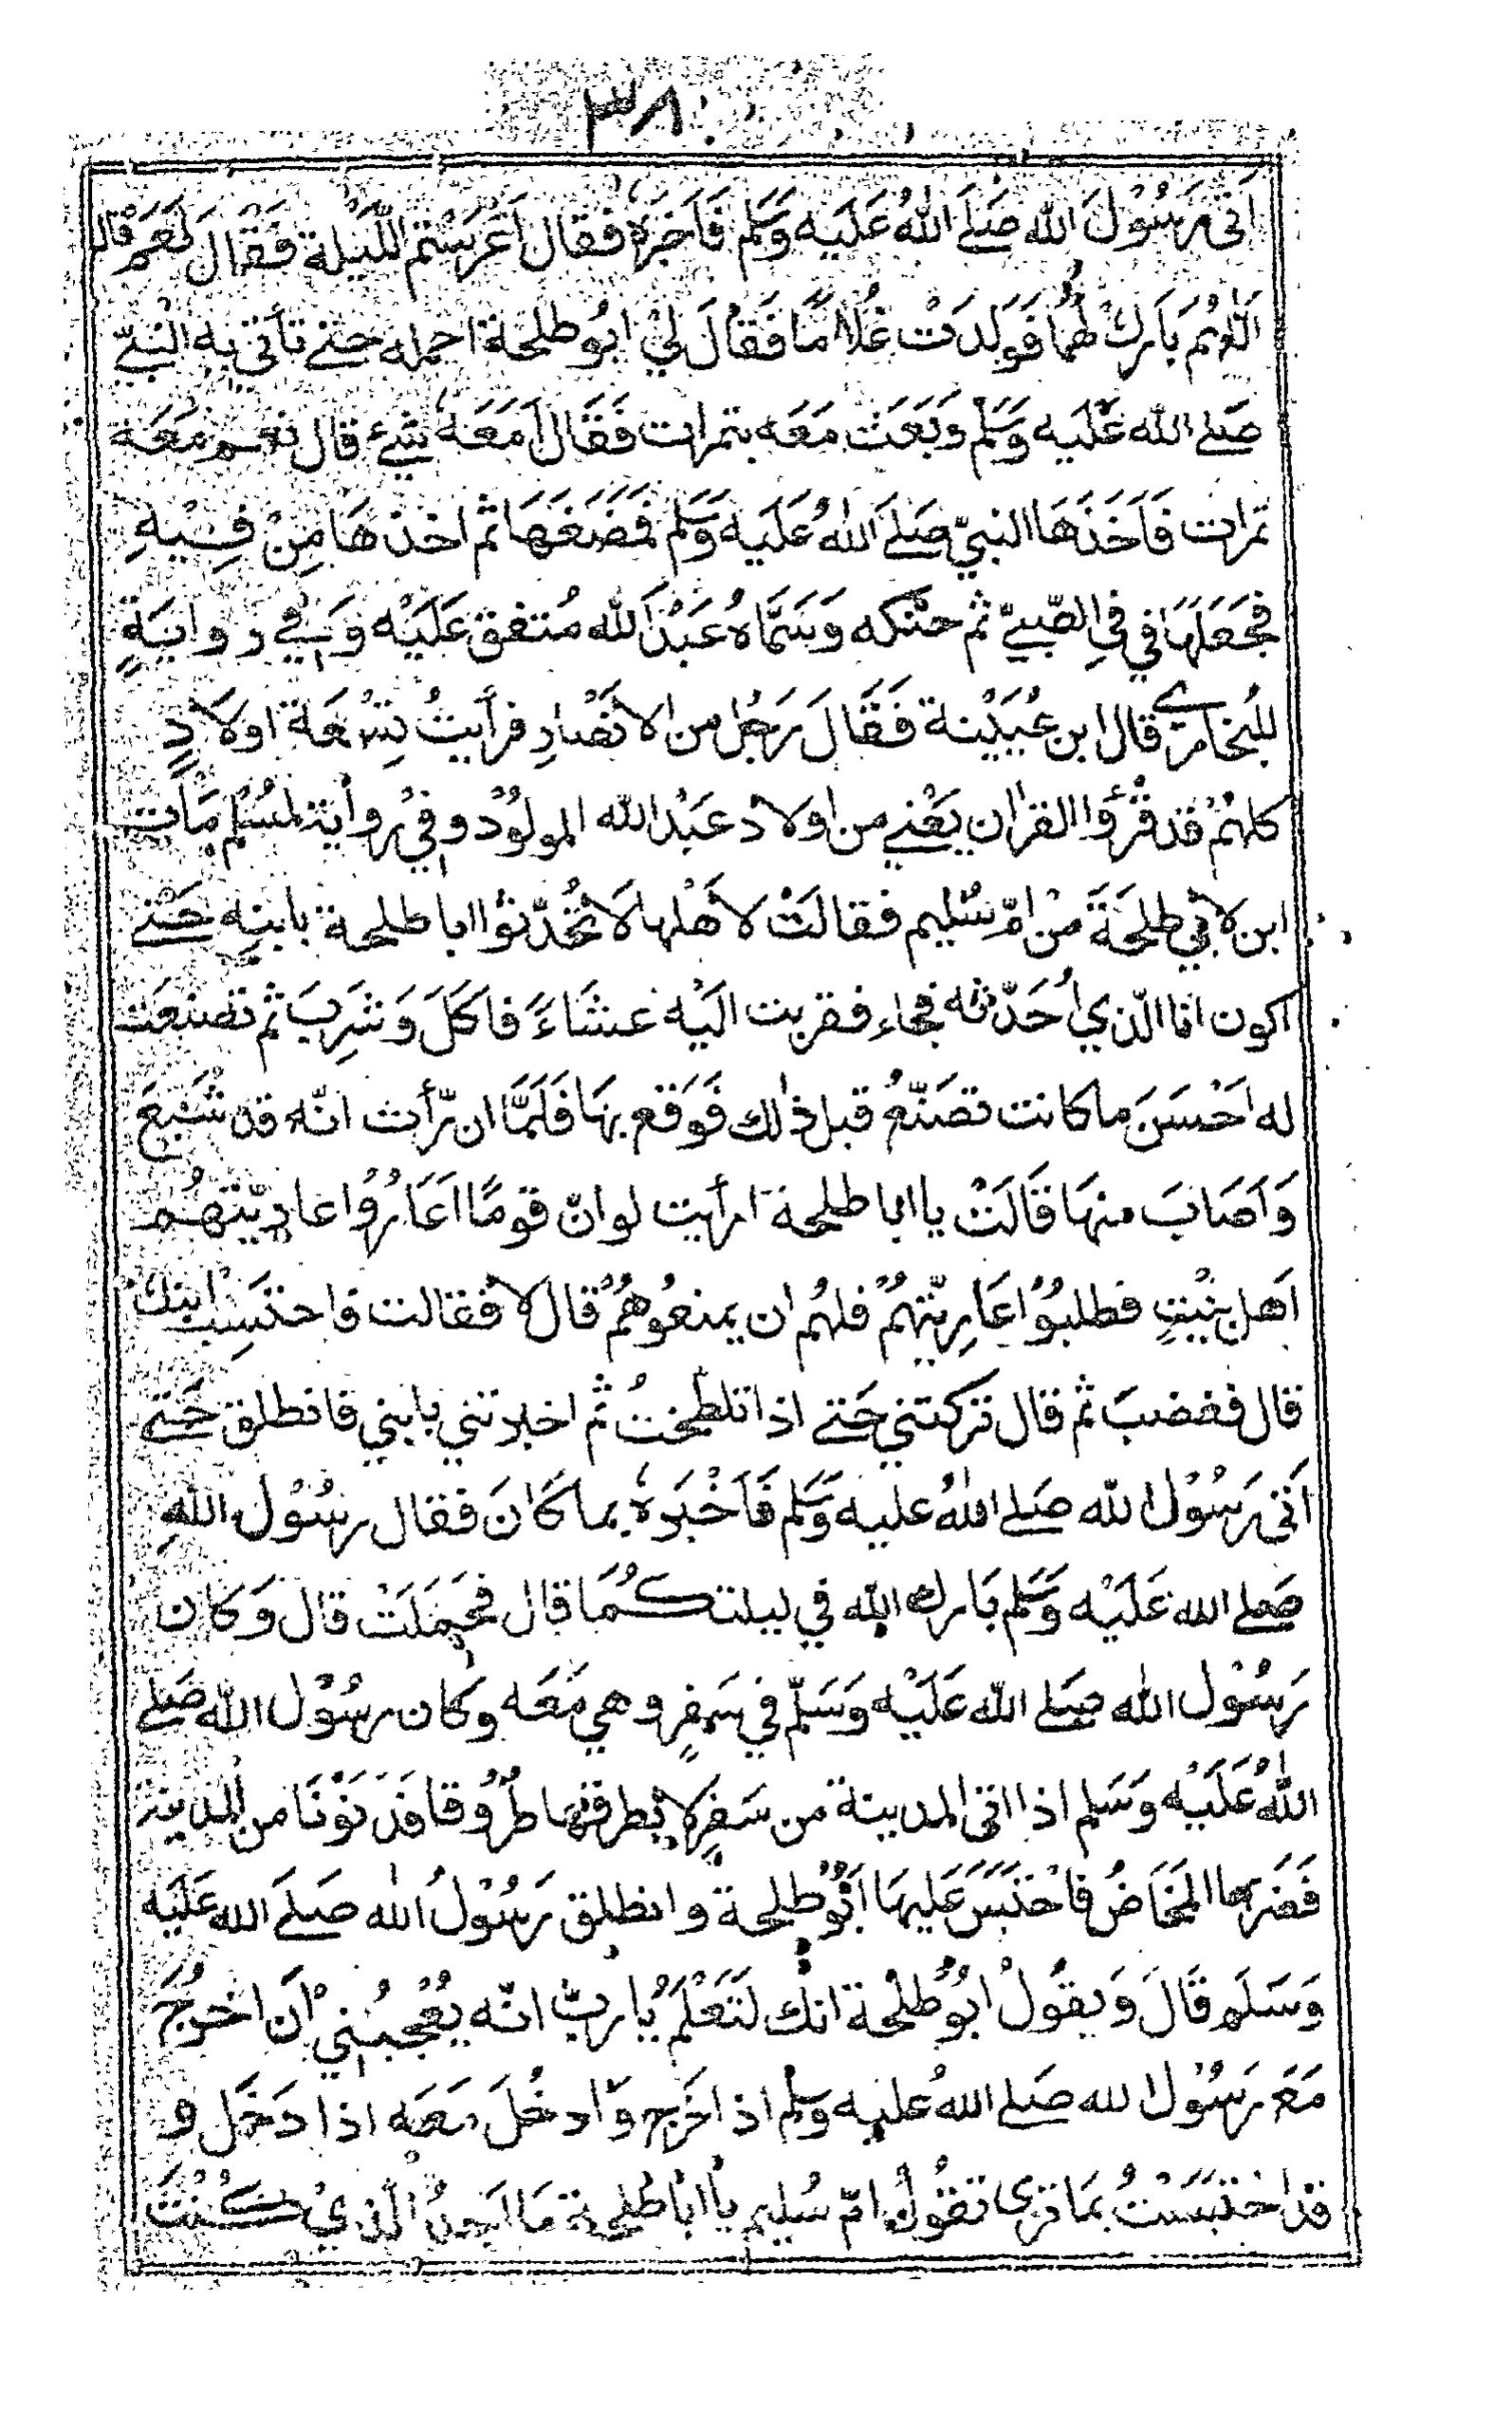 ٣٨
اَتٰى رَسُوْلَ اللّٰه صَلَے اللّٰهُ عَلَيه وَسَلَّم فَاَخبرَهٗ فقَال اَعَرَسْتم اللّيْلة فقَالَ نَعَمْ قَال
اللّٰهُم بَارِكْ لَهُمَا فَوَلَدَتْ غُلَامًا فَقَالَ لِيْ ابُو طلحَة احمله حتے تأتي به النبيّ
صَلے اللّٰه عَلَيه وَسَلَّم وَبَعَث مَعَه بتمرات فَقَالَ اَمَعَهٗ شيءٌ قال نعم مَعَه
تمرات فَاَخَذَهَا النبيّ صَلَے اللّٰهُ عَلَيه وَسَلَّم فَمَضَغَهَا ثم اخذهَا مِنْ فِيْهِ
فجَعَلَهَا في فِي الصّبيّ ثم حنّكه وَسَمَّاهُ عَبْدَ اللّٰه مُتفق عَلَيْه وَفِي روايَةٍ
للبُخَارِي قال ابن عُيَيْنة فَقَالَ رَجُل من الانصَارِ فرأيتُ تِسْعَة اولَادٍ
كلهُمْ قد قرؤا القراٰن يَعْنے من اولاد عَبْد اللّٰه المولوْد وفِيْ روايَة لمُسْلم مَات
ابن لابي طلحَةَ مِنْ امّ سُليم فقالَتْ لاهْلها لَا تُحدّثوْا ابا طلحة بابنِه حَتے
اكون انا الّذي اُحَدّثه فجَاء فقربت اليْه عشَاءً فاكَلَ وَشَرِبَ ثم تصنعَت
له اَحْسَنَ ما كانت تصَنّعُ قبل ذٰلك فَوَقع بهَا فَلَمَّا ان رَّأت انّه قد شَبعَ
وَاَصَابَ منهَا قَالَتْ يا ابا طلحة ارأيت لو انّ قومًا اعَارُوْا عاريّتهُم
اهل بيْتٍ فطلبُوْا عَارِيتّهُم فلهُم ان يمنعُوهُمْ قال لا فقالت فاحتسِب ابنك
قال فغضبَ ثم قال تركتني حَتے اذا تلطختُ ثم اخبرتني بابني فانطلق حَتے
اَتٰى رَسُوْلَ اللّٰه صَلے اللّٰهُ عليه وَسَلَّم فَاَخْبَرَهٗ بما كَانَ فقال رسُوْل اللّٰهِ
صَلے اللّٰه عَلَيْه وَسَلَّم بَارك اللّٰه في ليلتكُمَا قال فحَمَلَتْ قال وَكان
رَسُوْل اللّٰه صَلے اللّٰه عَلَيْه وَسَلَّم في سَفرٍ وهي مَعَه وكان رسُوْل اللّٰه صَلے
اللّٰهُ عَلَيْه وَسَلم اذا اتى المدينة من سَفرٍ لا يطرقهَا طرُوقا فَدَنَوْنَا من المدينة
فَضَرَبهَا المَخَاضُ فاحْتَبَسَ عَليهَا اَبُوْ طلحة وانطلق رَسُوْلُ اللّٰه صَلَے اللّٰه عَلَيه
وَسَلَم قَالَ وَيقُولُ ابُوْ طَلْحَة انك لَتَعْلَمُ يَا ربّ انّه يُعْجبُنِيْ اَن اخرُجَ
مَعَ رَسُوْل اللّٰه صَلے اللّٰهُ عليه وسلّم اذا خَرَج وَادخُلَ مَعَه اذا دَخَل و
قد احتبَسْتُ بمَا ترى تقُولُ امّ سُليم يا ابا طلحة مَا اَجدُ الّذيْ كُنْتُ